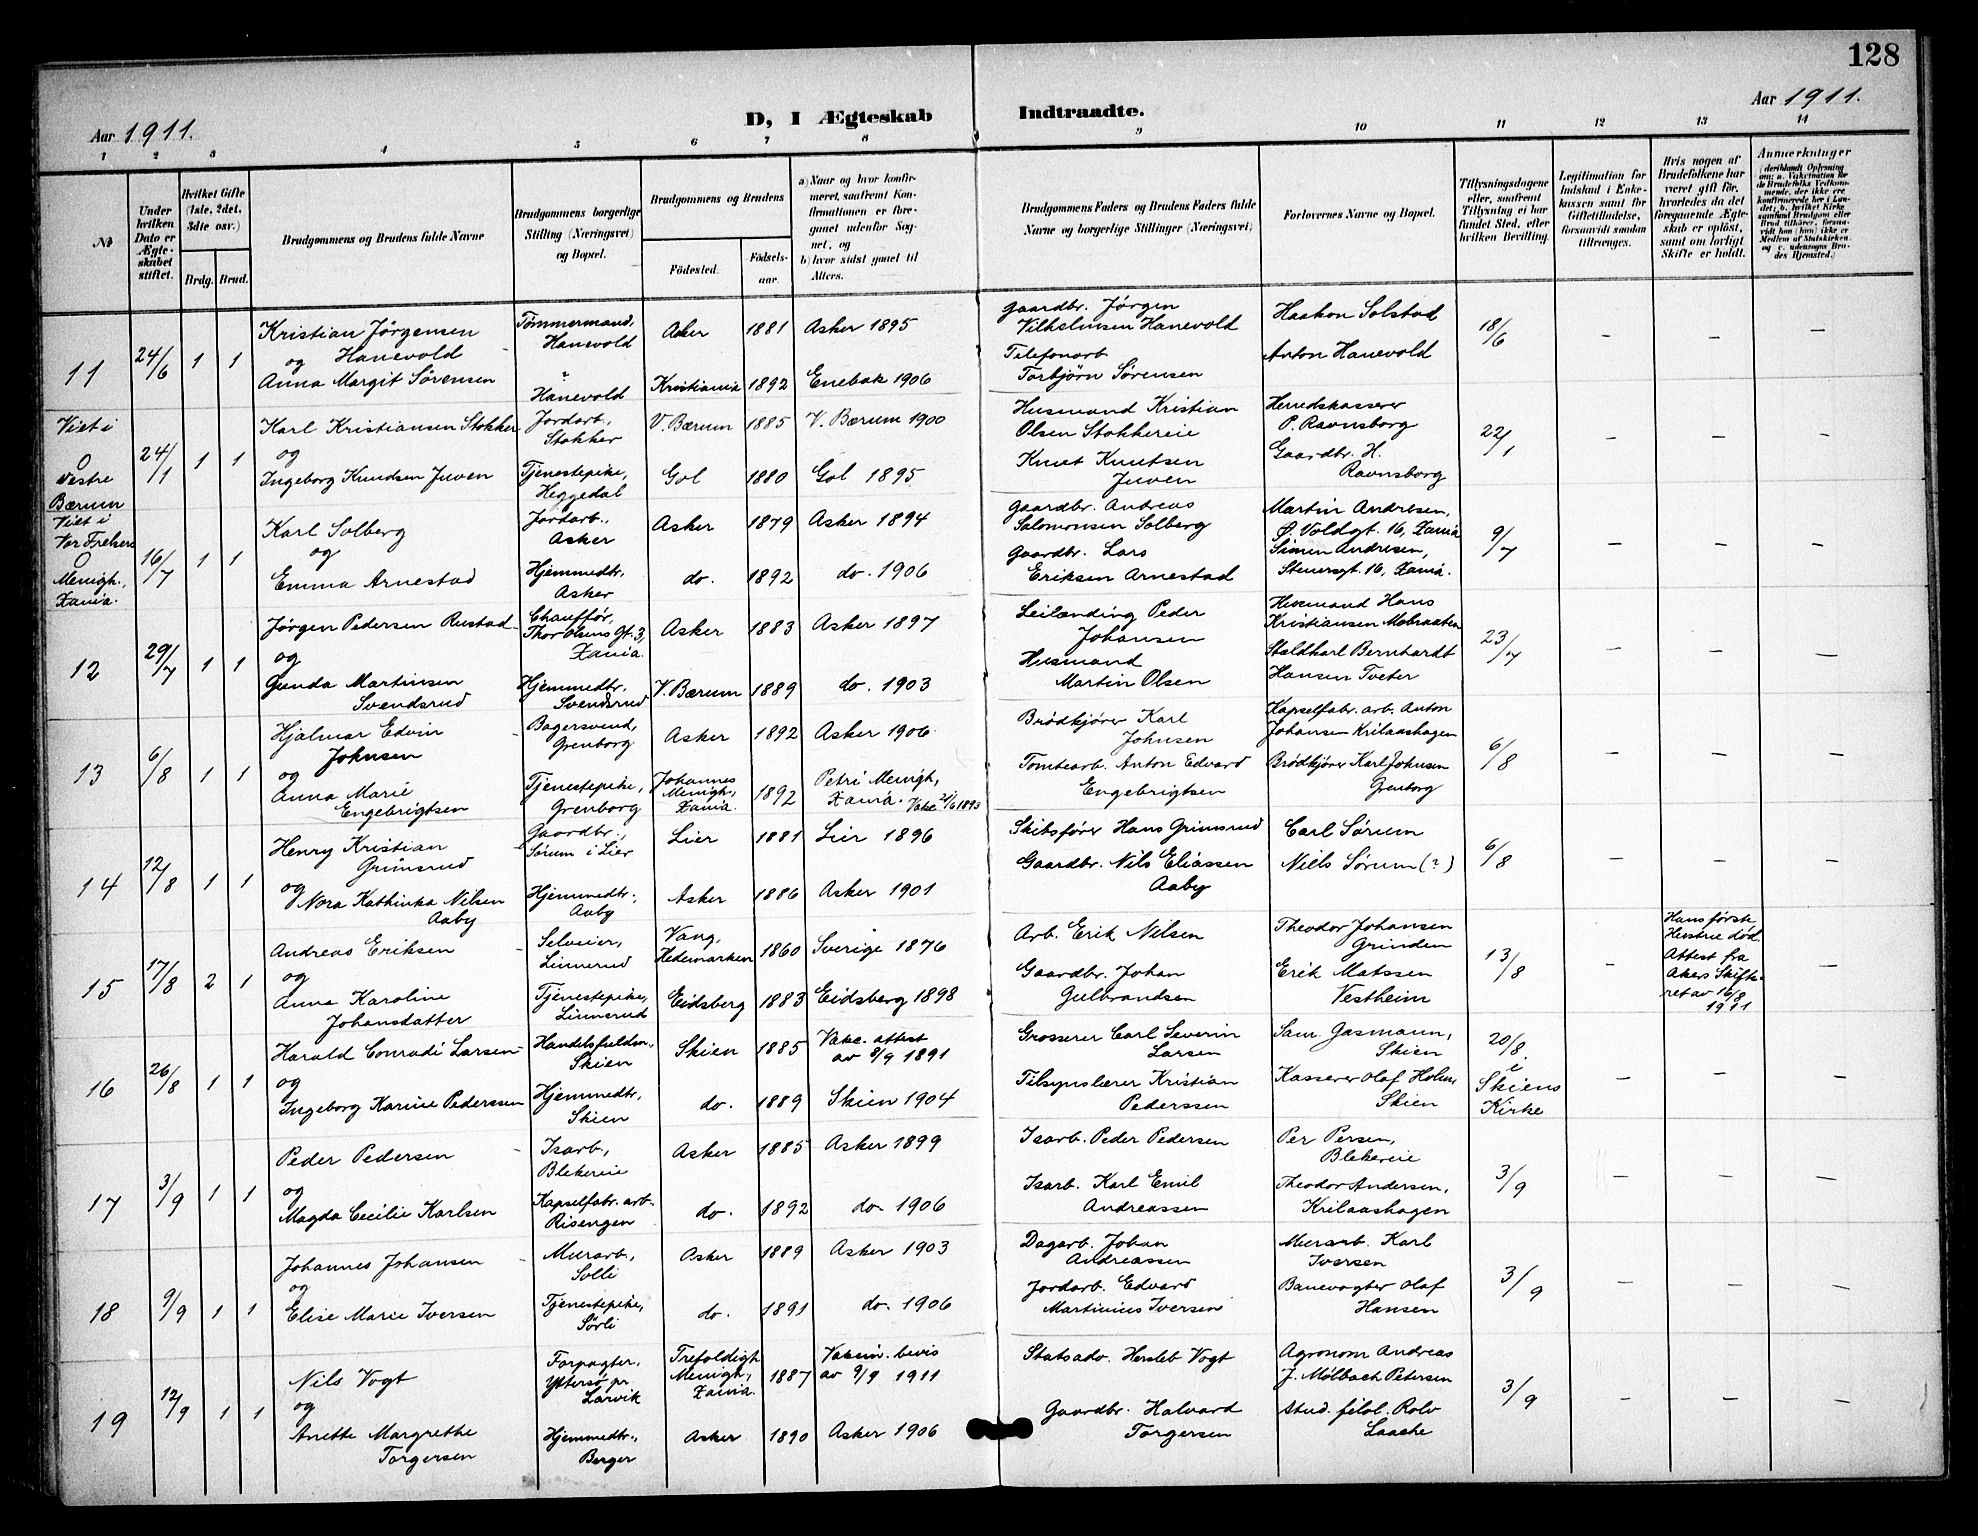 128
Aar 1911.
D, I Ægteskab Indtraadte.
Aar 1911.
1 2 3 4 5 6 7 8 9 10 11 12 13 14
No
Under hvilken Dato er Ægteskabet stiftet.
Hvilket Gifte (1ste, 2det, 3dte osv.)
Brdg. Brud.
Brudgommens og Brudens fulde Navne
Brudgommens borgerlige Stilling (Næringsvei) og Bopæl.
Brudgommens og Brudens
Fødested.
Fødselsaar.
a) Naar og hvor konfirmeret, saafremt Konfirmationen er foregaaet udenfor Sognet, og
b) hvor sidst gaaet til Alters.
Brudgommens Faders og Brudens Faders fulde Navne og borgerlige Stillinger (Næringsvei)
Forlovernes Navne og Bopæl.
Tillysningsdagene eller, saafremt Tillysning ei har fundet Sted, efter hvilken Bevilling.
Legitimation for Indskud i Enkekassen samt for Giftetilladelse, forsaavidt saadan tiltrænges.
Hvis nogen af Brudefolkene har været gift før, hvorledes da det foregaaende Ægteskab er opløst, samt om lovligt Skifte er holdt.
Anmerkninger
(deriblandt Oplysning om: a. Vakcination for de Brudefolks Vedkommende, der ikke ere konfirmerede her i Landet; b. hvilket Kirkesamfund Brudgom eller Brud tilhører, forsaavidt han (hun) ikke er Medlem af Statskirken, og c. udensogns Brudes Hjemsted.)
11 24/6 1 1
Kristian Jørgensen Hanevold
og
Anna Margit Sørensen
Tømmermand, Hanevold
"
Hanevold
Asker 1881 Asker 1895
Kristiania 1892 Enebak 1906
Gaardbr. Jørgen Vilhelmsen Hanevold
Telefonarb Torbjørn Sørensen
Haakon Solstad
Anton Hanevold
18/6 – – –
Viet i Vestre Bærum
0 24/1 1 1
Karl Kristiansen Stokker
og
Ingeborg Knudsen Juven
Jordarb., Stokker
Tjenestepike, Heggedal
V. Bærum 1885 V. Bærum 1900
Gol 1880 Gol 1895
Husmand Kristian Olsen Stokkereie
Knut Knutsen Juven
Herredskasserer P. Ravnsborg
Gaardbr. H. Ravnsborg
22/1 – – –
Viet i Vor Frelsers Menigh., Xania.
0 16/7 1 1
Karl Solberg
og
Emma Arnestad
Jordarb., Asker
Hjemmedtr, Asker
Asker 1879 Asker 1894
do. 1892 do. 1906
Gaardbr. Andreas Salomonsen Solberg
Gaardbr. Lars Eriksen Arnestad
Martin Andresen, Ø. Voldgt. 16, Xania
Simen Andresen, Stenersgt. 16, Xania.
9/7 – – –
12 29/7 1 1
Jørgen Pedersen Rustad
og
Gunda Martinsen Svendsrud
Chauffør, Thor Olsens Gt. 3, Xania.
Hjemmedtr. Svendsrud
Asker 1883 Asker 1897
V. Bærum 1889 do. 1903
Leilænding Peder Johansen
Husmand Martin Olsen
Husmand Hans Kristiansen Mobraaten
Staldkarl Bernhardt Hansen Tveter
23/7 – – –
13 6/8 1 1
Hjalmar Edvin Johnsen
og
Anna Marie Engebrigtsen
Bagersvend, Grenborg
Tjenestepike, Grenborg
Asker 1892 Asker 1906
Johannes Menigh, Xania. 1892 Petri Menigh, Xania. Vakc
Brødkjører Karl Johnsen
Tomtearb. Anton Edvard Engebrigtsen
Kapselfabr. arb. Anton Johansen Krilaashagen
Brødkjører Karl Johnsen Grenborg
6/8 – – –
14 12/8 1 1
Henry Kristian Grimsrud
og
Nora Kathinka Nilsen Aaby
Gaardbr., Sørum i Lier
Hjemmedtr., Aaby
Lier 1881 Lier 1896
Asker 1886 Asker 1901
Skibsfører Hans Grimsrud
Gaardbr. Nils Eliassen Aaby
Carl Sørum
Niels Sørum (?)
6/8 – – –
15 17/8 2 1
Andreas Eriksen
og
Anna Karoline Johansdatter
Selveier, Linnerud
Tjenestepike, Linnerud
Vang, Hedemarken 1860 Sverige 1876
Eidsberg 1883 Eidsberg 1898
Arb. Erik Nilsen
Gaardbr. Johan Gulbrandsen
Theodor Johansen Grinden
Erik Matssen Vestheim
13/8 –
Hans første Hustru død. Attest fra Akers Skifteret av 16/8 1911
–
16 26/8 1 1
Harald Conradi Larsen
og
Ingeborg Karine Pederssen
Handelsfuldm., Skien
Hjemmedtr, Skien
Skien 1885 Vakc. attest av 8/9 1891
do. 1889 Skien 1904
Grosserer Carl Severin Larsen
Tilsynslærer Kristian Pederssen
Sam. Gasmann, Skien
Kasserer Olaf Holm, Skien
20/8. i Skiens Kirke – – –
17 3/9 1 1
Peder Pedersen
og
Magda Cecilie Karlsen
Isarb., Blekereie
Kapselfabr. arb. Risengen
Asker 1885 Asker 1899
do. 1892 do. 1906
Isarb. Peder Pedersen
Isarb. Karl Emil Andreassen
Per Persen, Blekereie
Theodor Andersen, Krilaashagen
3/9 – – –
18 9/9 1 1
Johannes Johansen
og
Elise Marie Iversen
Murarb., Solli
Tjenestepike, Sørli
Asker 1889 Asker 1903
do. 1891 do. 1906
Dagarb. Johan Andreassen
Jordarb. Edvard Martinius Iversen
Murarb. Karl Iversen
Banevogter Olaf Hansen
3/9 – – –
19 12/9 1 1
Nils Vogt
og
Anette Margrethe Torgersen
Forpagter, Yttersø pr. Larvik
Hjemmedtr., Berger
Trefoldigh Menigh, Xania. 1887 Vaccin. bevis av 9/9 1911
Asker 1890 Asker 1906
Statsadv. Hersleb Vogt
Gaardbr. Halvard Torgersen
Agronom Andreas J. Mølbach Petersen
Stud. filol. Rolv Laache
3/9 – – –